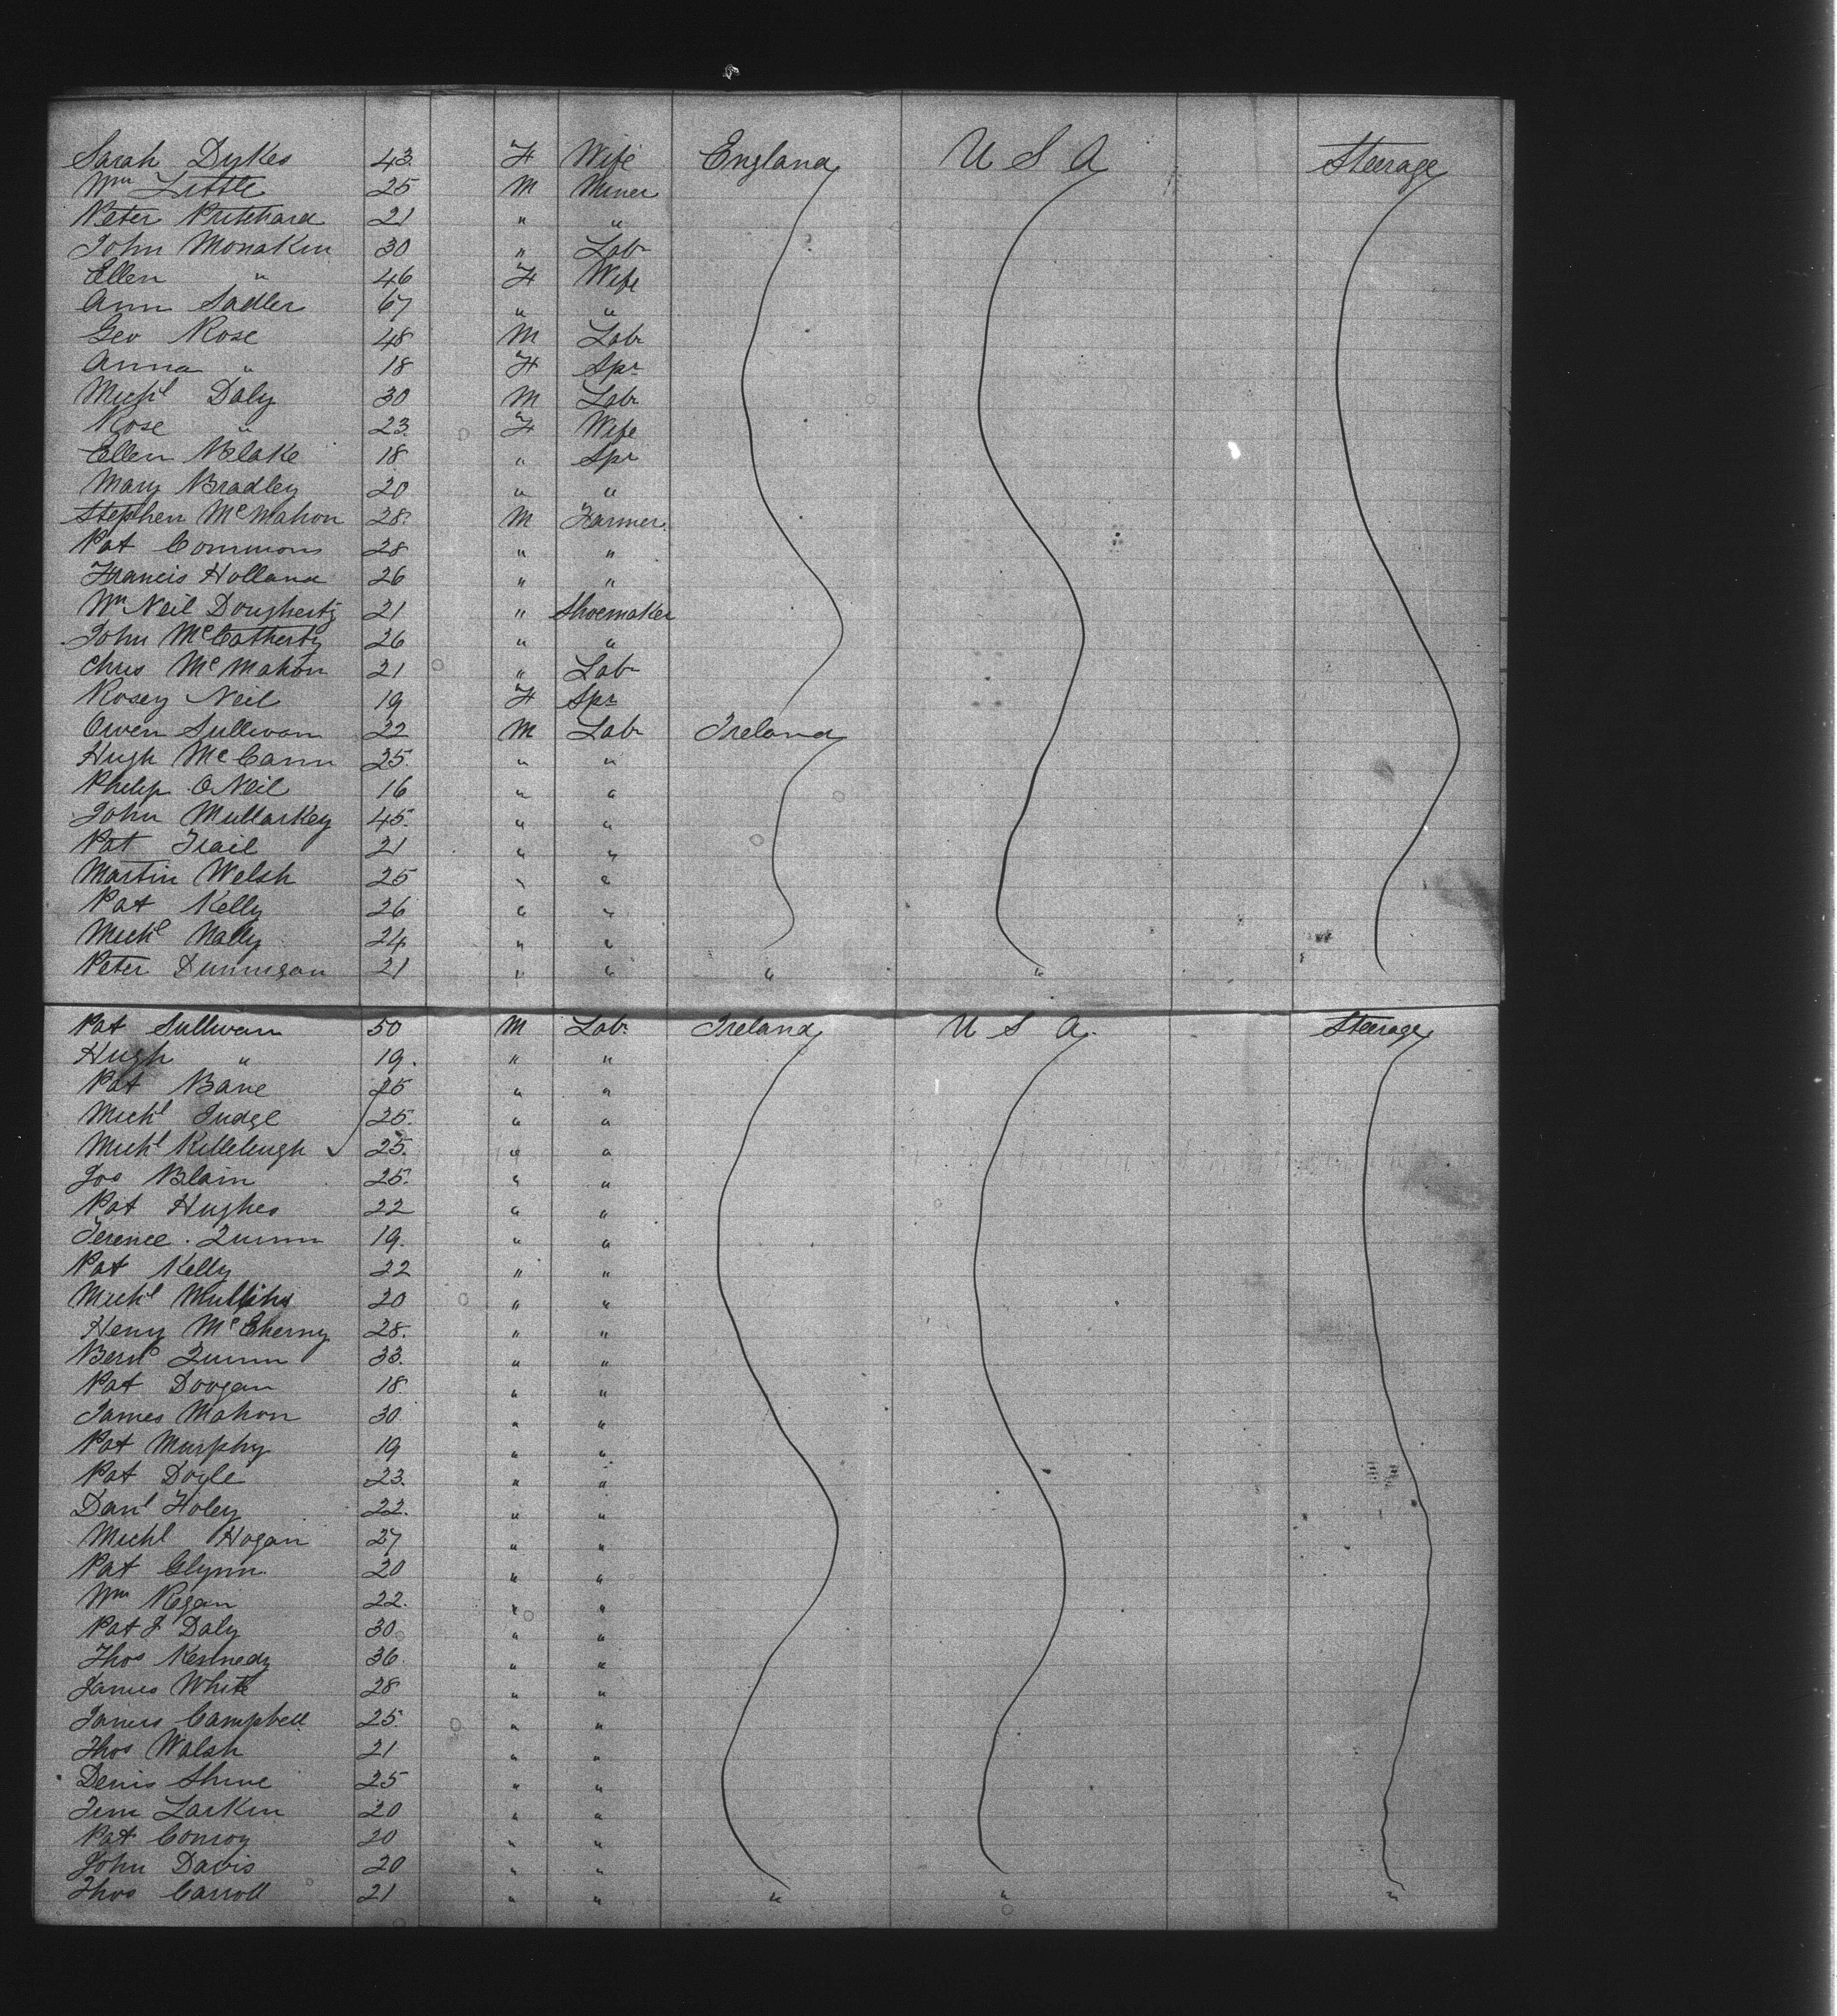 Sarah Dykes 43 F Wife England U S A Steerage
Wm Little 25 M Miner
Peter Pritthard 21 " "
John Monakin 30 " Labr
Ellen " 46 F Wife
Ann Sadler 67 " "
Geo Rose 48 M Labr
Anna " 18 F Spr
Michl Daly 30 M Labr
Rose " 23 F Wife
Ellen Blake 18 " Spr
Mary Bradley 20 " "
Stephen McMahon 28 M Farmer
Pat Commons 28 " "
Francis Holland 26 " "
Wm Neil Dougherty 21 " Shoemaker
John McCatherty 26 " "
Chris McMahon 21 " Labr
Rosey Neil 19 F Spr
Owen Sullivan 22 M Labr Ireland
Hugh McCann 25 " "
Philip O'Neil 16 " "
John Mullarkey 45 " "
Pat Trail 21 " "
Martin Welsh 25 " "
Pat Kelly 26 " "
Michl Nally 24 " "
Peter Dunnigan 21 " " " "
Pat Sullivan 50 M Labr Ireland U S A. Steerage
Hugh " 19. " "
Pat Bane 25 " "
Michl Judge 25. " "
Michl Killeleugh 25. " "
Jos Blain 25. " "
Pat Hughes 22 " "
Terence Quinn 19. " "
Pat Kelly 22 " "
Michl Mullins 20 " "
Henry 28. " "
Bernd Quinn 33. " "
Pat Doogan 18 " "
James Mahon 30 " "
Pat Murphy 19 " "
Pat Doyle 23. " "
Danl Foley 22. " "
Michl Hogan 27 " "
Pat Glynn 20 " "
Wm Regan 22. " "
Pat J Daly 30 " "
Thos Kennedy 36 " "
James White 28 " "
James Campbell 25 " "
Thos Walsh 21 " "
Denis Shine 25 " "
Tim Larkin 20 " "
Pat Conroy 20 " "
John Davis 20 " "
Thos Carroll 21 " " " " "